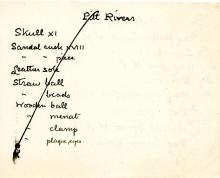 Pitt Rivers
Skull XI
Sandal anck XVIII
" " pair
Leather sole
Straw ball
" beads
Wooden ball
" menat
" clamp
" plaque, eyes